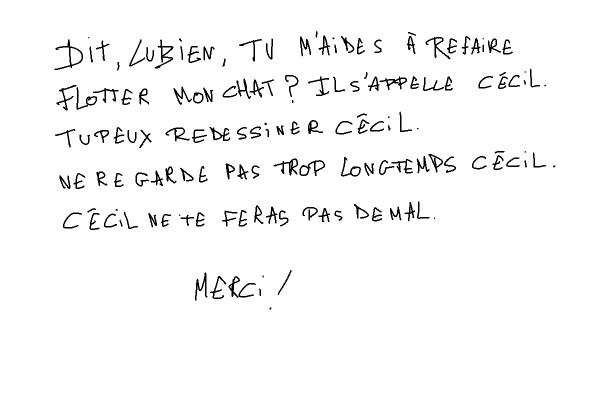 DIT, LUBIEN, TU M'AIDES À REFAIRE
FLOTTER MON CHAT? IL S'APPELLE CÉCIL.
TU PEUX REDESSINER CÉCIL.
NE REGARDE PAS TROP LONGTEMPS CÉCIL.
CÉCIL NE TE FERAS PAS DE MAL.
MERCI!